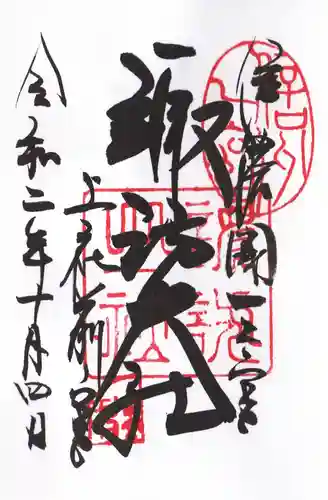 信濃國一之宮
諏訪大社
上社前宮
令和二年十月四日